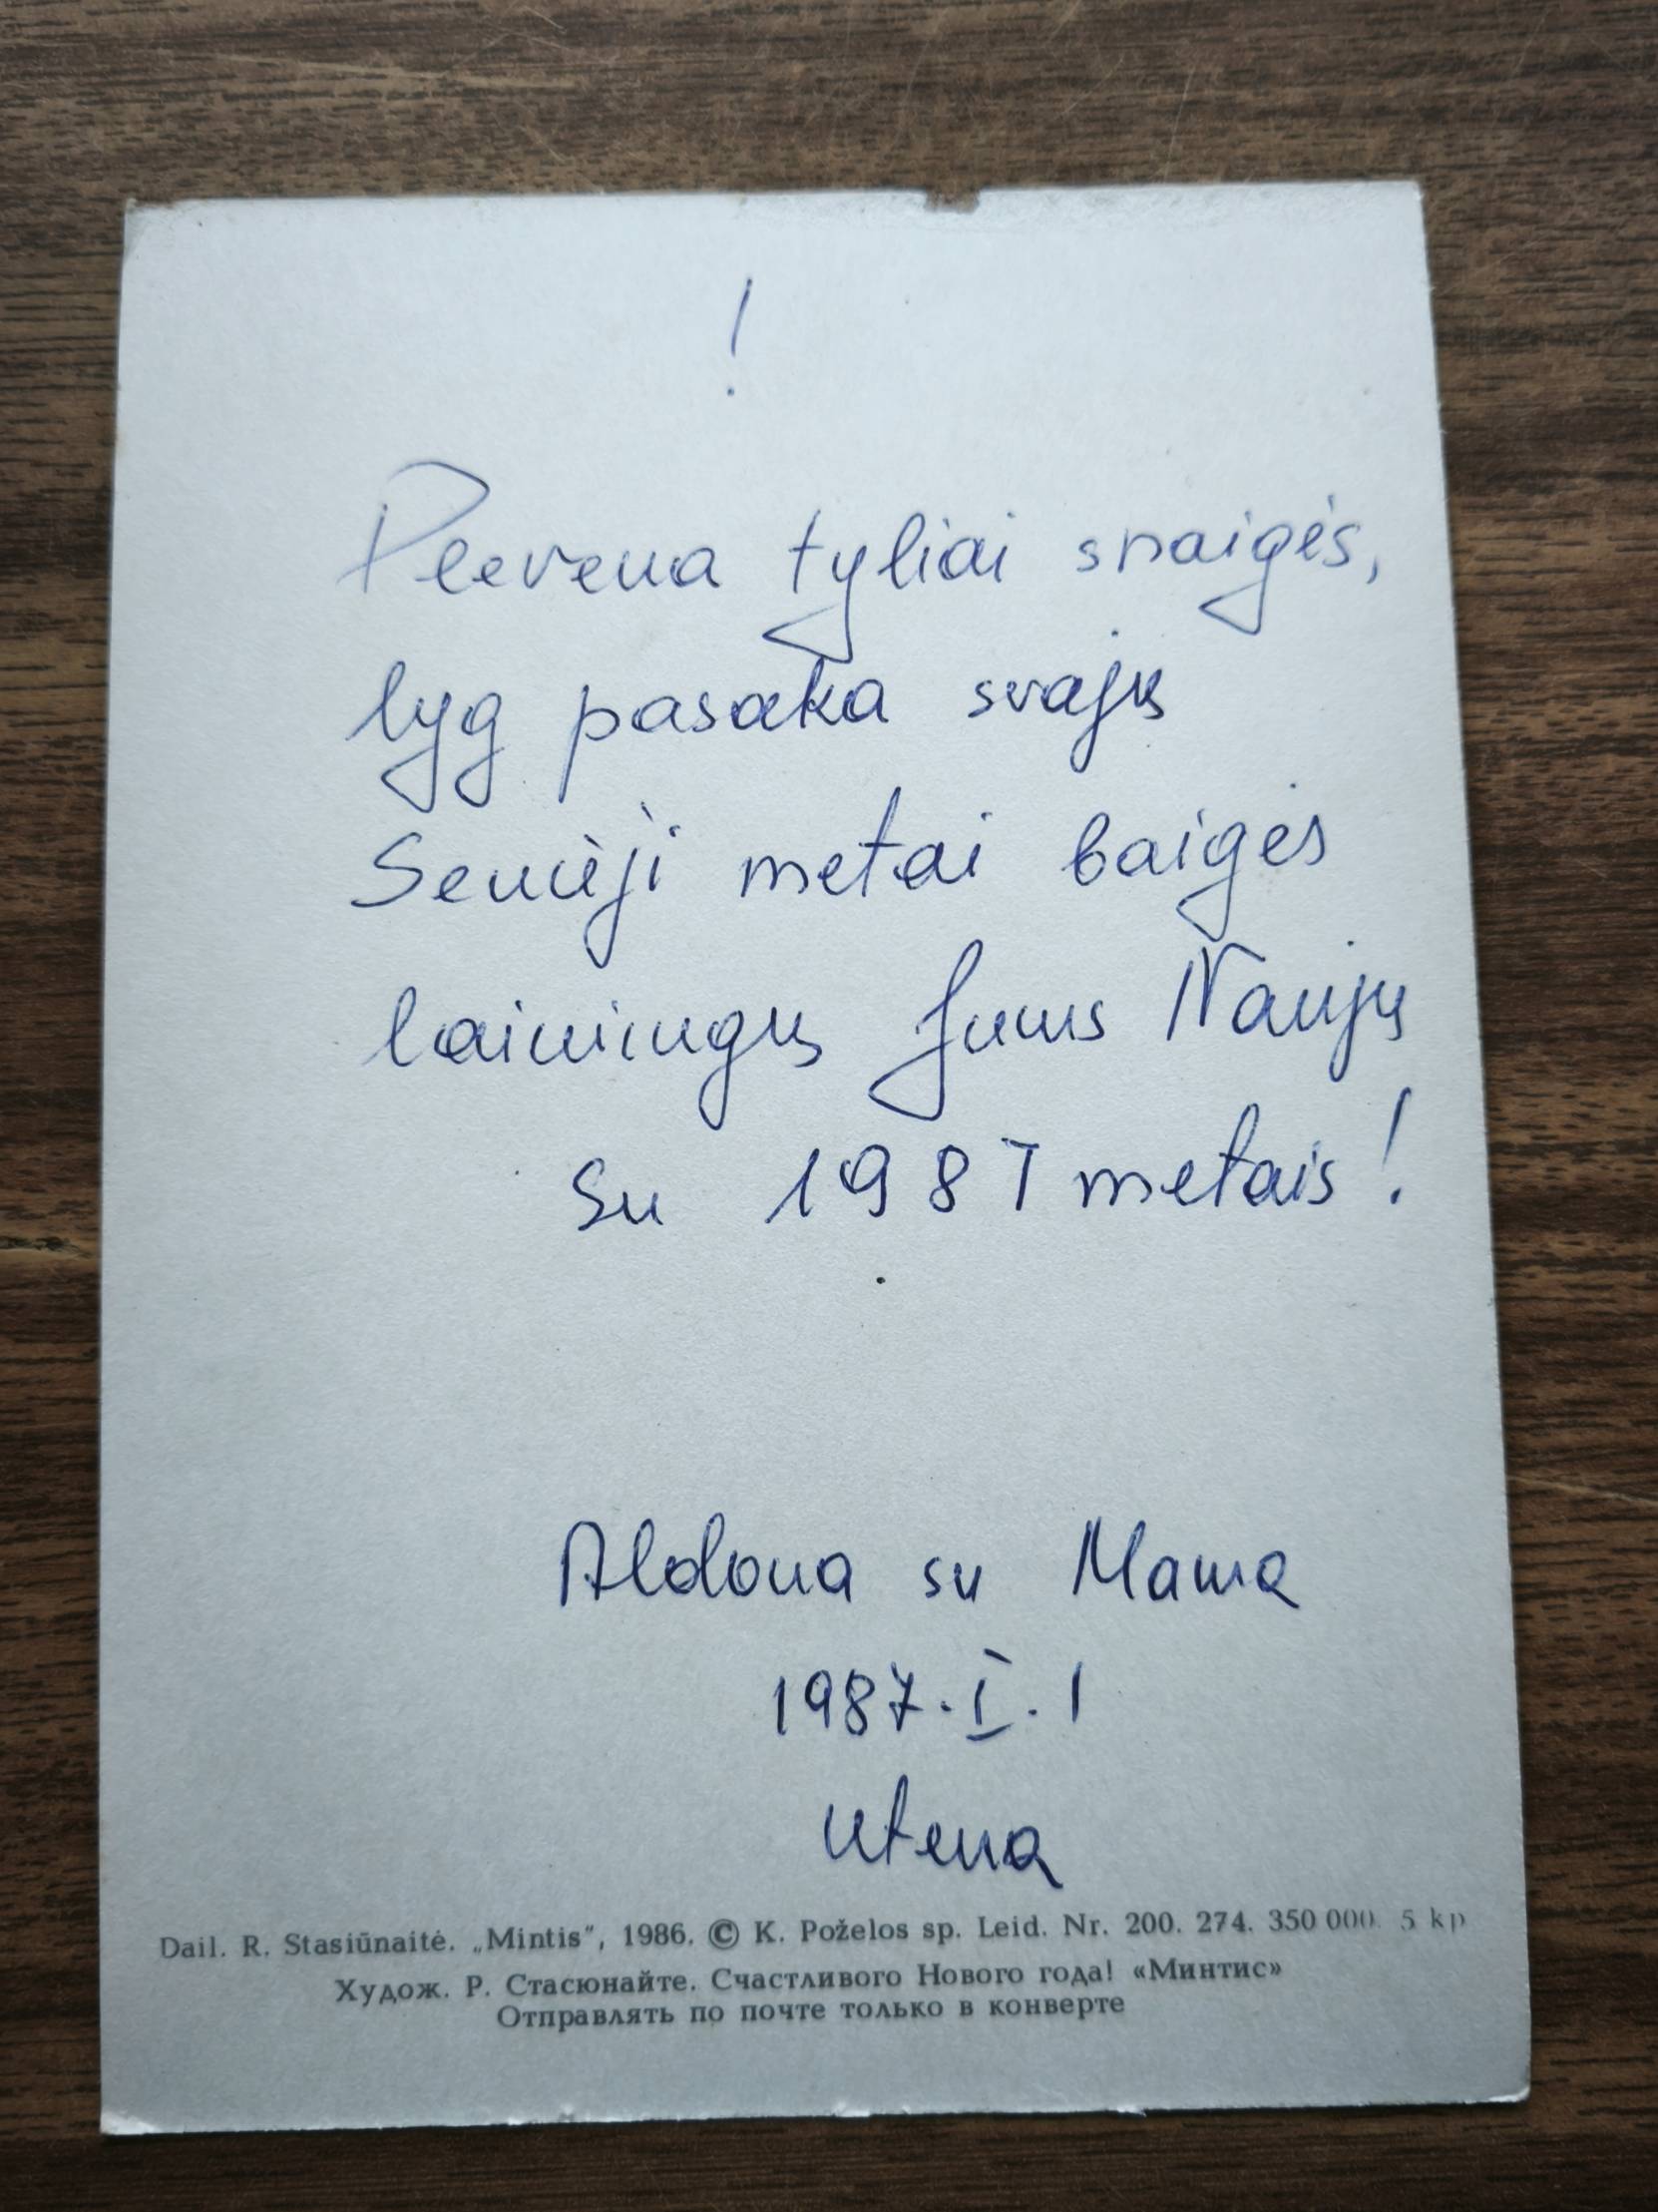 !
Plevena tyliai snaigės,
lyg pasaka svajų
Senieji metai baigės
laimingų Jums Naujų
Su 1987 metais!
Aldona su Mama
1987.I.1
Utena
Dail. R. Stasiūnaitė. „Mintis“, 1986. © K. Poželos sp. Leid. Nr. 200. 274. 350 000. 5 kp
Худож. Р. Стасюнайте. Счастливого Нового года! «Минтис»
Отправлять по почте только в конверте